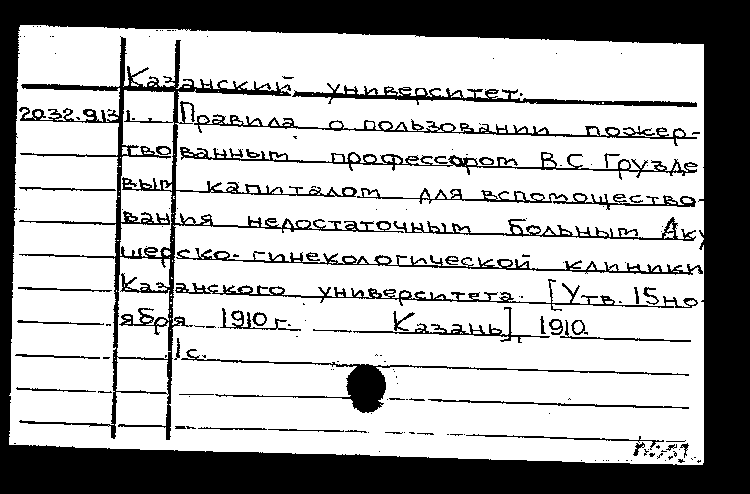 Казанский университет.
2032.913 г. Правила о пользовании пожер-
твованным профессором В.С. Грузде
вым капиталом для вспомощество-
вания недостаточным больным Аку
шерско-гинекологической клиники
Казанского университета. [Утв. 15 но-
ября 1910 г. Казань], 1910.
1с.